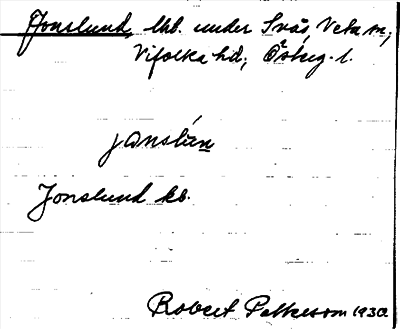 Jonslund, lht. under Svås, Veta sn,
Vifolka hd, Östug. l.
jɷnslún
Jonslund kb.
Robert Petterson 1930